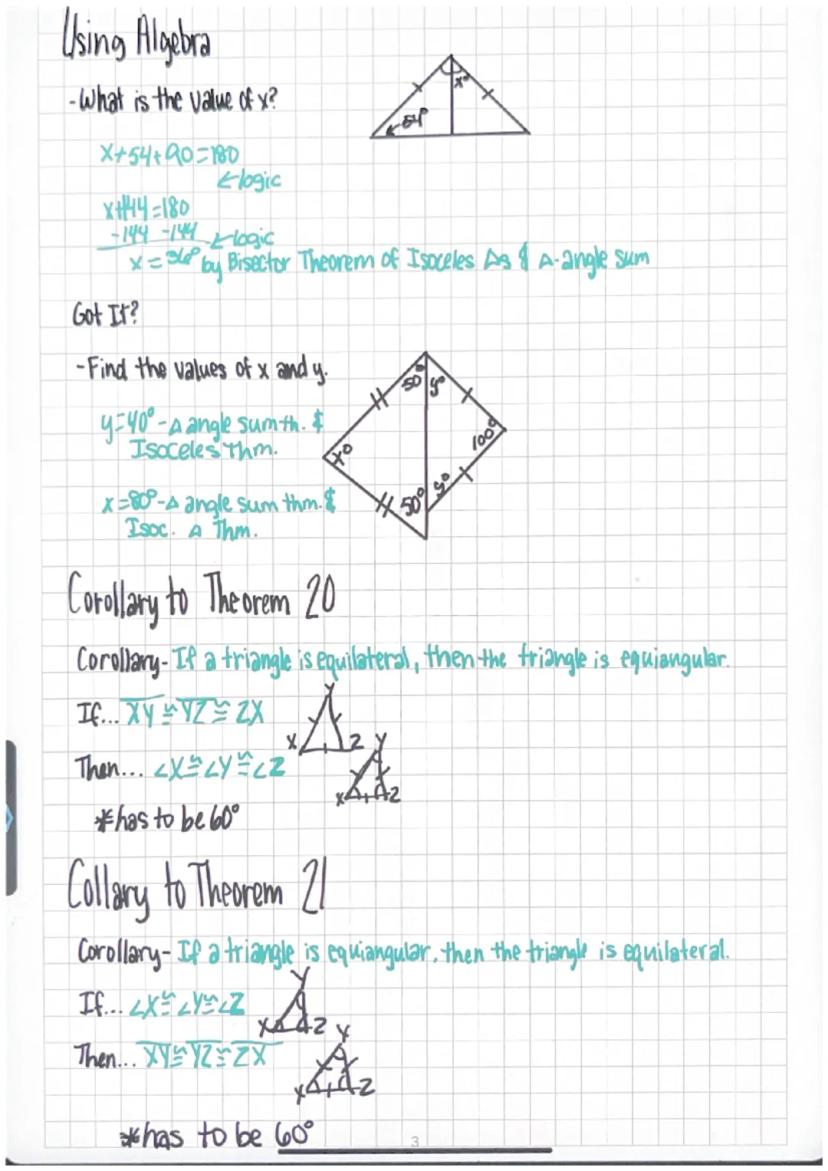 Using Algebra
-What is the value of x?
x°
54°
x+54+90=180
←logic
x+144=180
-144 -144 ←logic
x=36° by Bisector Theorem of Isoceles Δs & Δ-angle sum
Got It?
-Find the values of x and y.
50° y°
y=40°-Δ angle sum th. &
Isoceles Thm.
100°
x°
y°
50°
x=80°-Δ angle sum thm. &
Isoc. Δ Thm.
Corollary to Theorem 20
Corollary-If a triangle is equilateral, then the triangle is equiangular.
If... XY≅YZ≅ZX
Y
X Z
Then... ∠X≅∠Y≅∠Z
Y
X Z
*has to be 60°
Collary to Theorem 21
Corollary-If a triangle is equiangular, then the triangle is equilateral.
If... ∠X≅∠Y≅∠Z
Y
X Z
Then... XY≅YZ≅ZX
Y
X Z
*has to be 60°
3